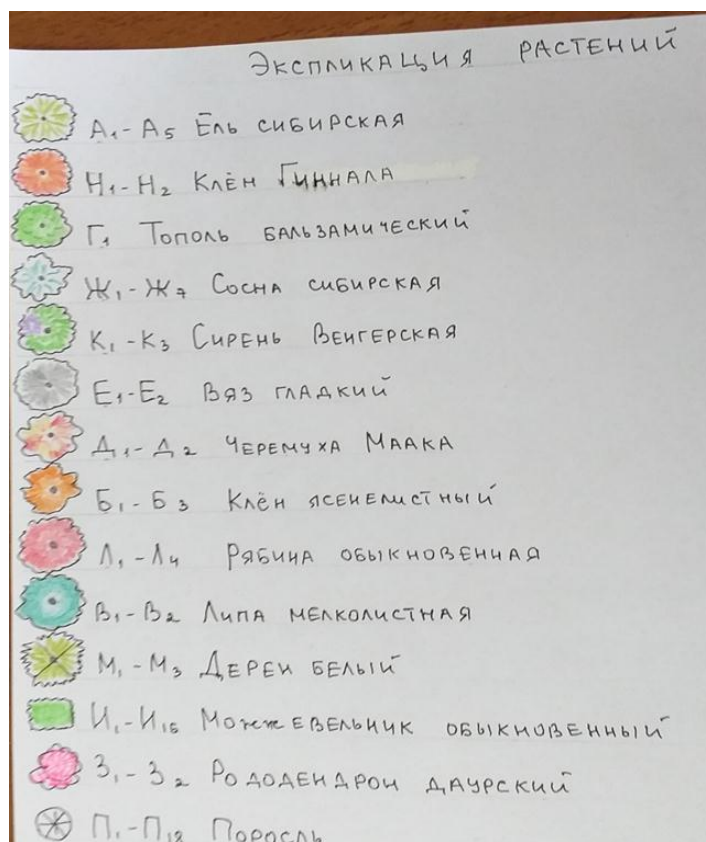 Экспликация растений
А₁-А₅ Ель сибирская
Н₁-Н₂ Клён Гиннала
Г₁ Тополь бальзамический
Ж₁-Ж₇ Сосна сибирская
К₁-К₃ Сирень Венгерская
Е₁-Е₂ Вяз гладкий
Д₁-Д₂ Черемуха Маака
Б₁-Б₃ Клён ясенелистный
Л₁-Л₄ Рябина обыкновенная
В₁-В₂ Липа мелколистная
М₁-М₃ Дерен белый
И₁-И₁₆ Можжевельник обыкновенный
З₁-З₂ Рододендрон даурский
П₁-П₁₈ Поросль